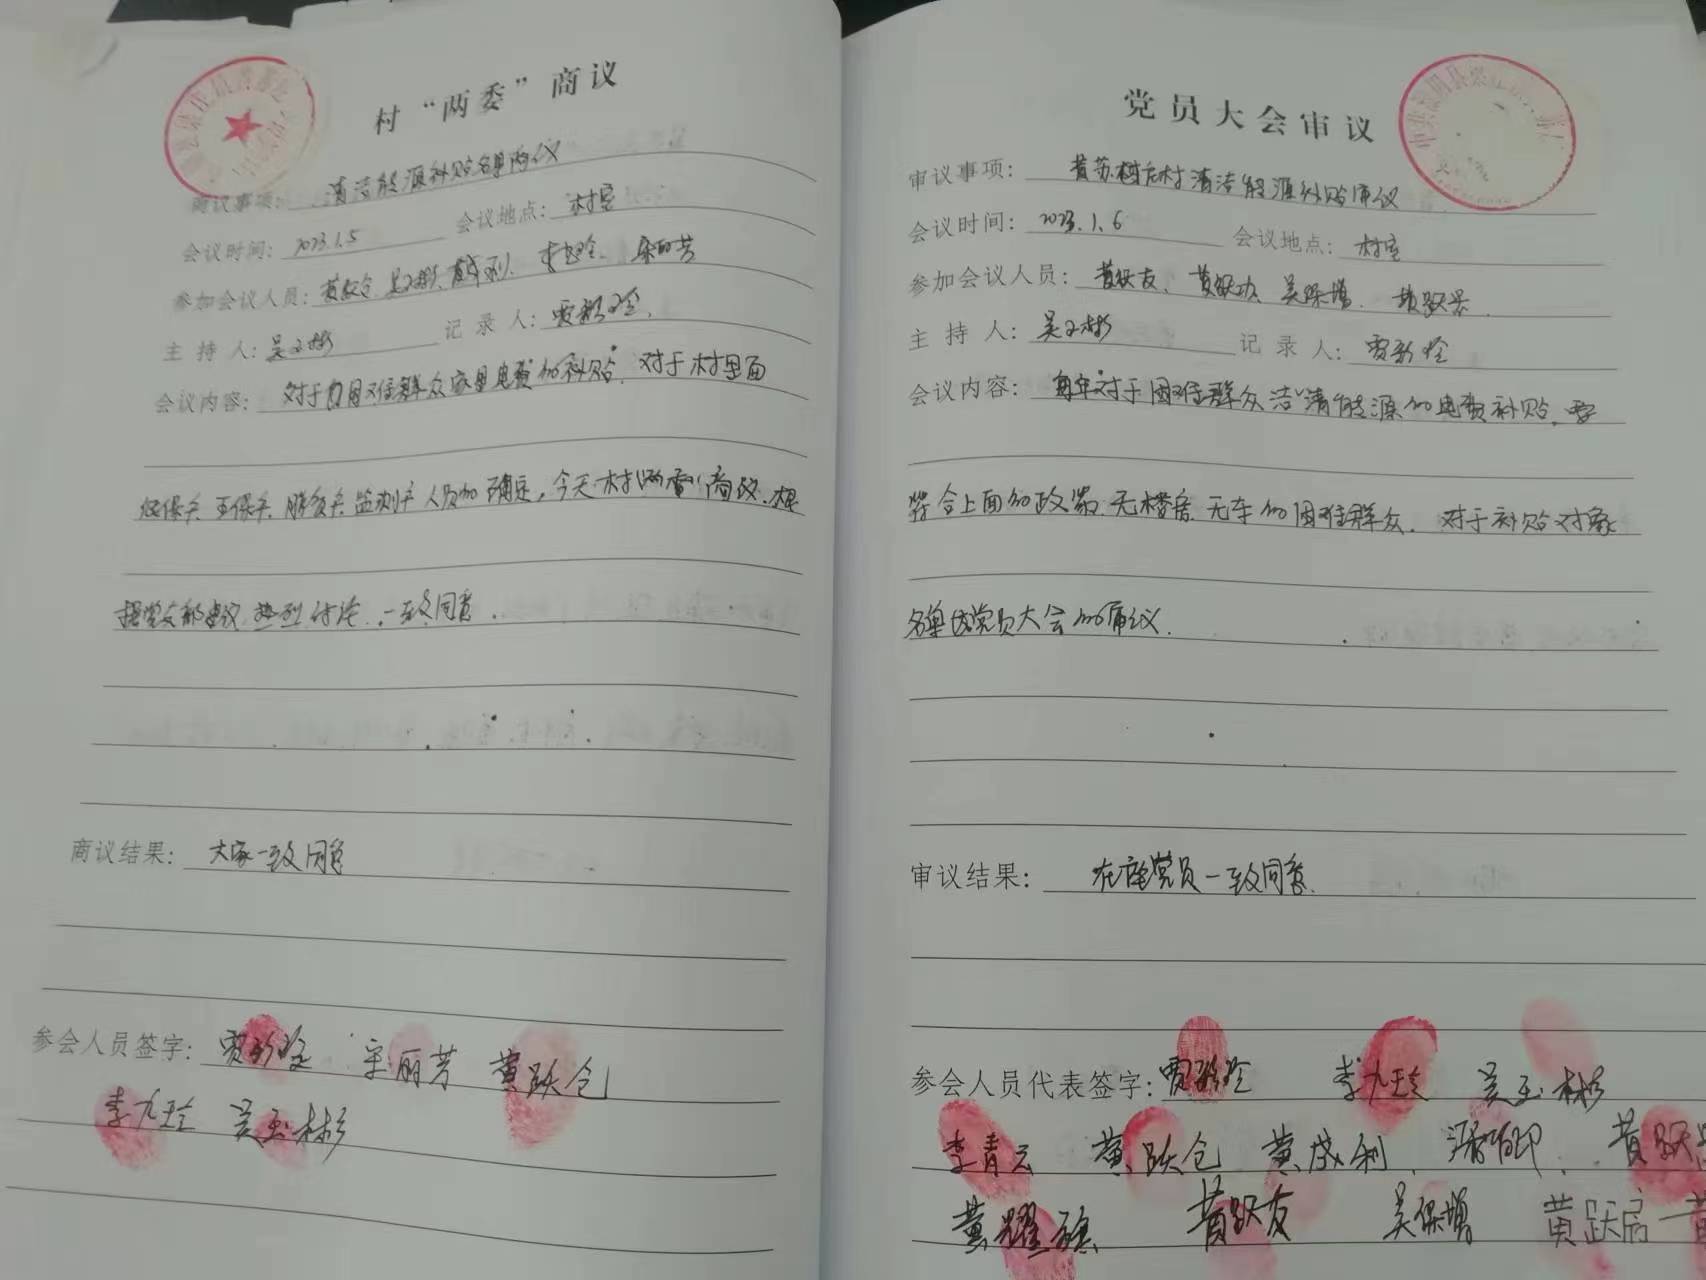 村“两委”商议
商议事项: 清洁能源补贴名单商议
会议时间: 2023.1.5 会议地点: 村室
参加会议人员: 黄跃仓 吴玉彬 黄成利 李九玲 宋丽芳
主持人: 吴玉彬 记录人: 贾彩玲
会议内容: 对于困难群众家里电费的补贴, 对于村里面
低保户 五保户 脱贫户 监测户人员的确定, 今天村“两委”商议, 根
据党支部建议 热烈讨论, 一致同意.
商议结果: 大家一致同意
参会人员签字: 贾彩玲 宋丽芳 黄跃仓
李九玲 吴玉彬
党员大会审议
审议事项: 村清洁能源补贴审议
会议时间: 2023.1.6 会议地点: 村室
参加会议人员: 黄跃友、黄跃功、吴保增、黄跃
主持人: 吴玉彬 记录人: 贾彩玲
会议内容: 每年对于困难群众洁清能源的电费补贴, 要
符合上面的政策, 无楼房, 无车的困难群众, 对于补贴对象
名单 党员大会的审议.
审议结果: 在座党员一致同意.
参会人员代表签字: 贾彩玲 李九玲 吴玉彬
李青云 黄跃仓 黄成利 黄跃
黄耀 黄跃友 吴保增 黄跃 黄